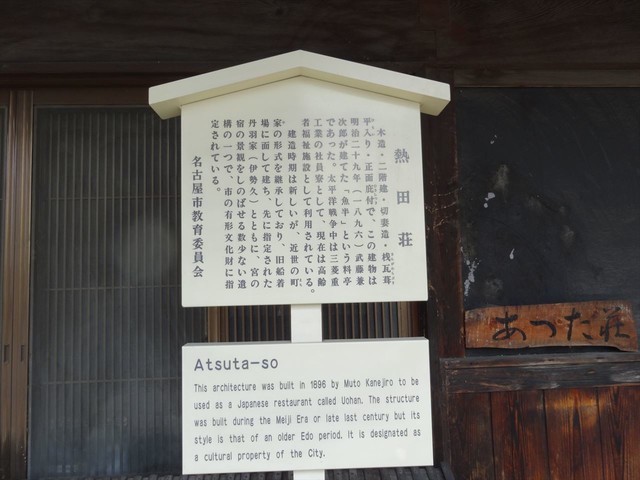 熱田荘
木造・二階建・切妻造・桟瓦葺
平入り・正面庇付で、この建物は
明治二十九年(一八九六)武藤兼
次郎が建てた「魚半」という料亭
であった。太平洋戦争中は三菱重
工業の社員寮として、現在は高齢
者福祉施設として利用されている。
建造時期は新しいが、近世の町
家の形式を継承しており、旧船着
場に面して建ち、先に指定された
丹羽家(伊勢久)とともに、宮の
宿の景観をしのばせる数少ない遺
構の一つで、市の有形文化財に指
定されている。
名古屋市教育委員会
Atsuta-so
This architecture was built in 1896 by Muto Kanejiro to be
used as a Japanese restaurant called Uohan. The structure
was built during the Meiji Era or late last century but its
style is that of an older Edo period. It is designated as
a cultural property of the City.
あつた荘